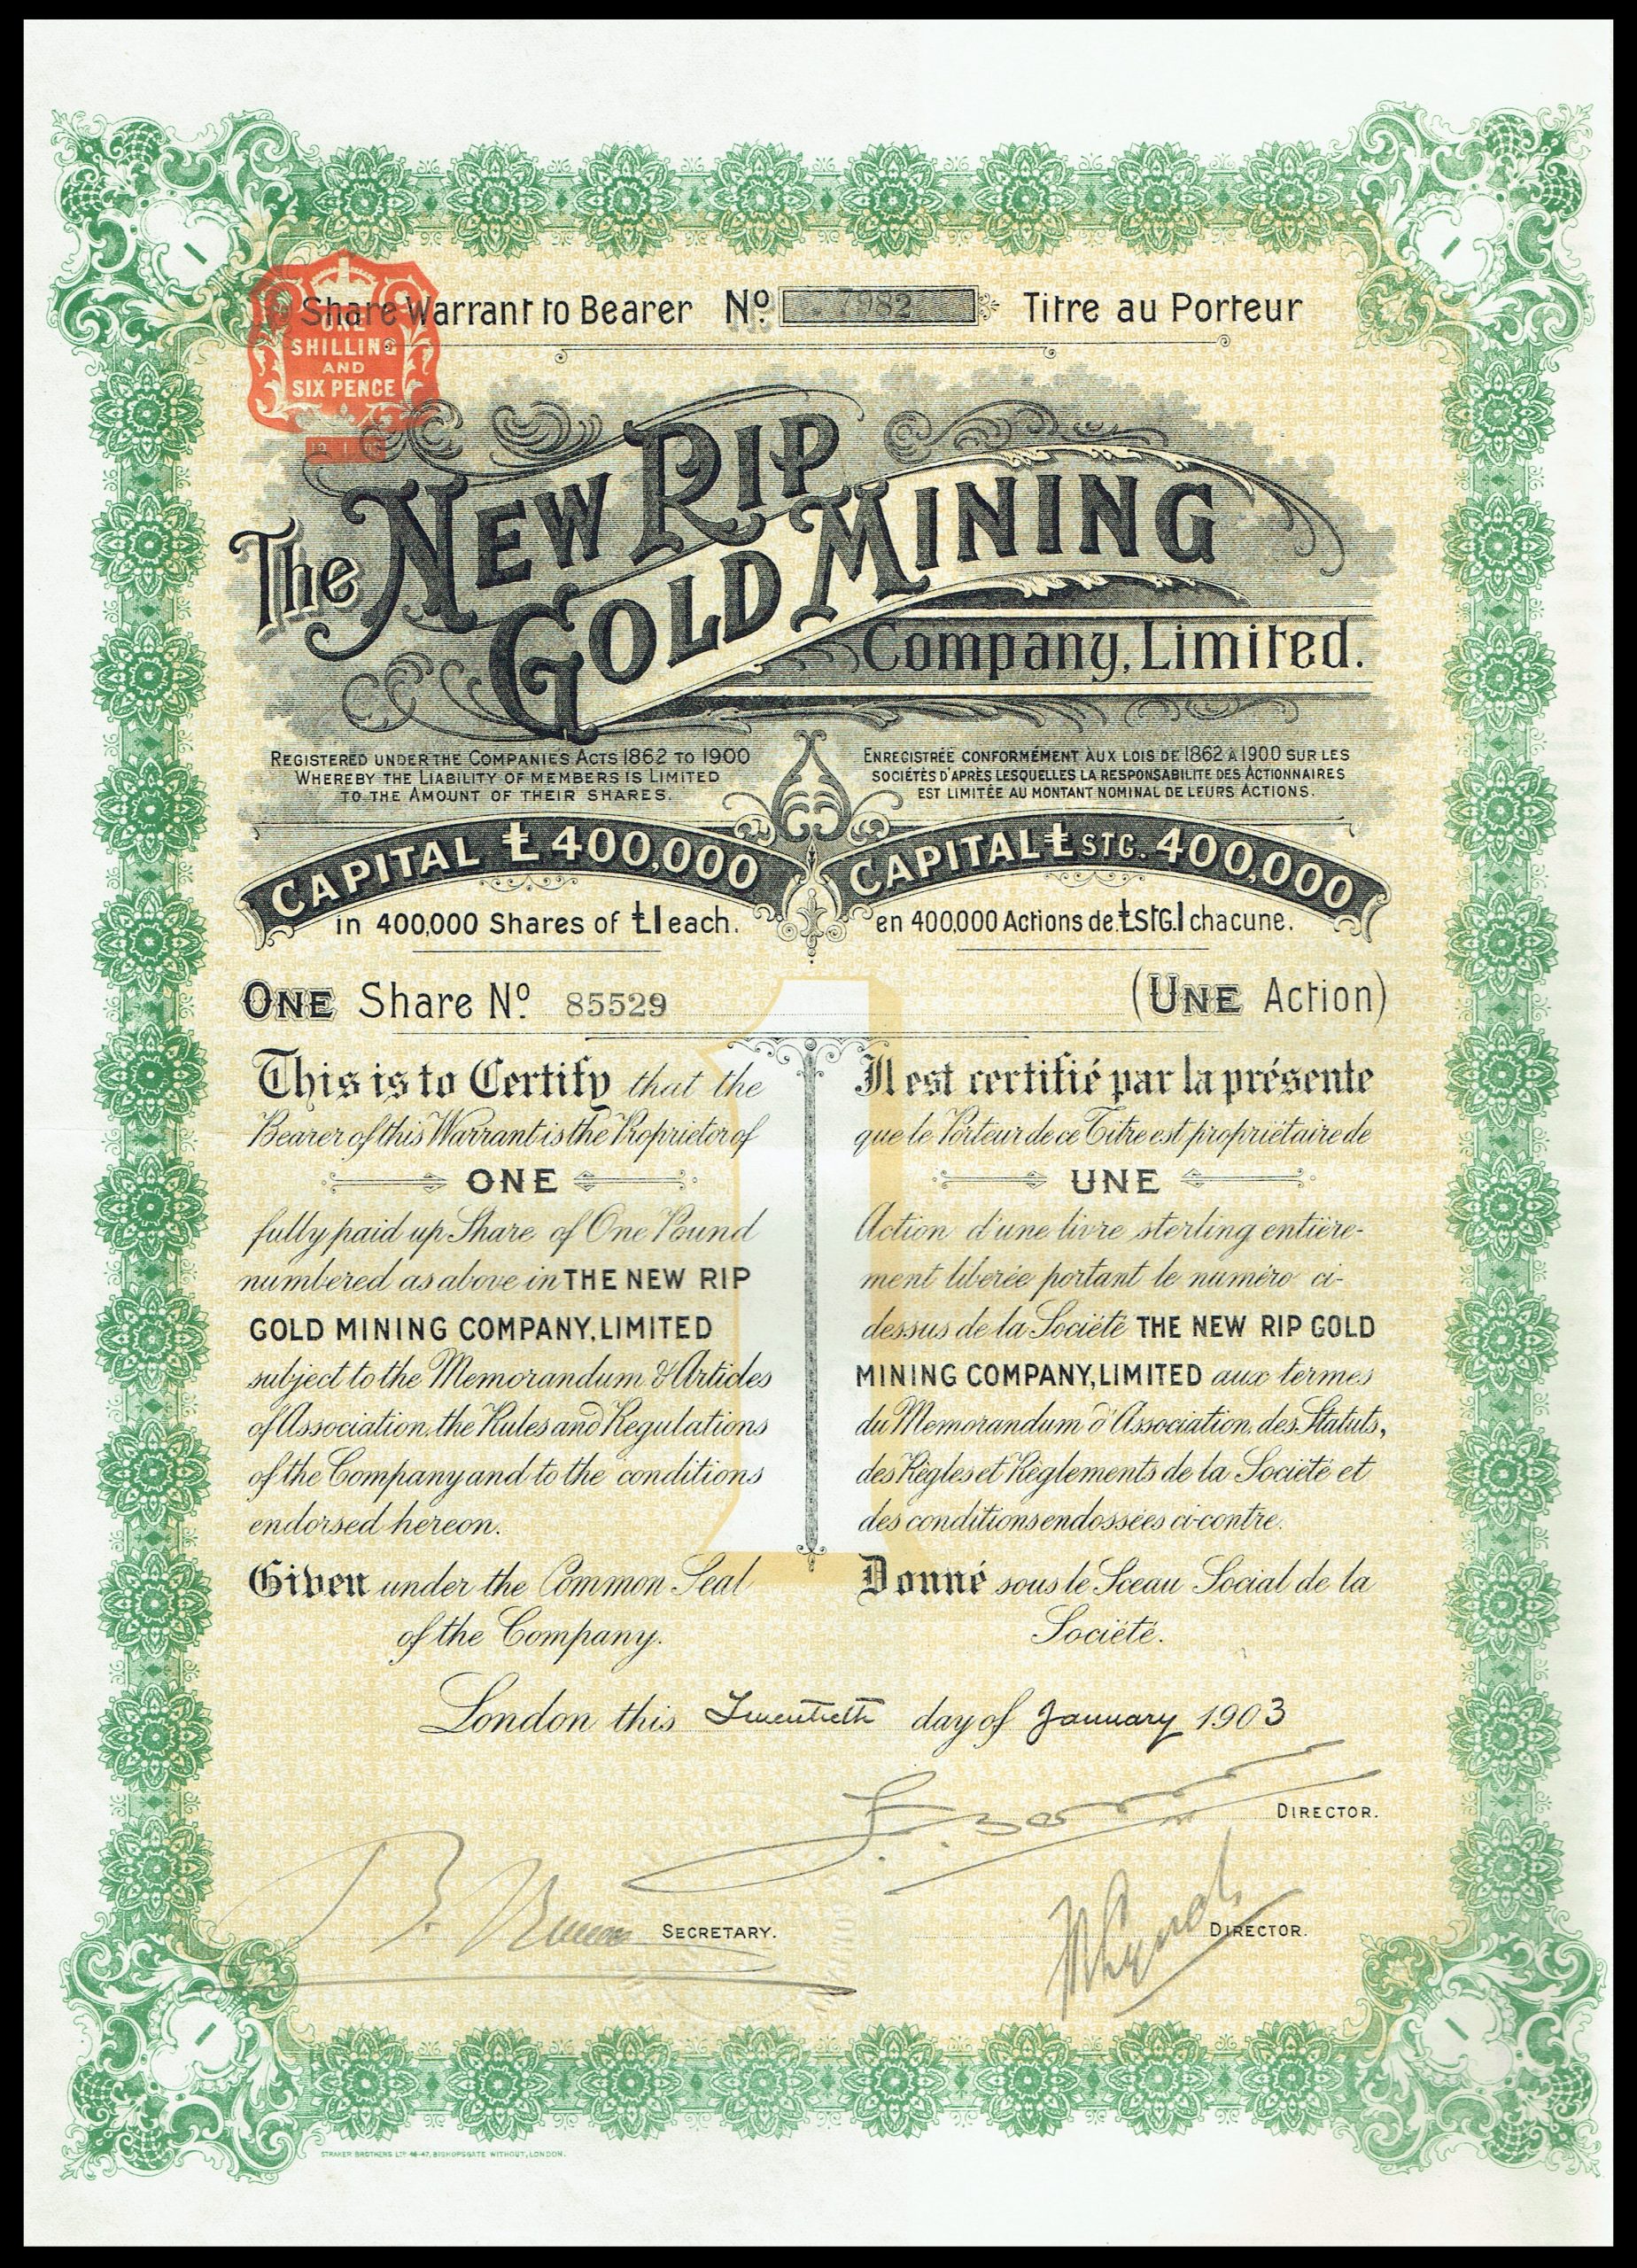 Share Warrant to Bearer Nº 7982 Titre au Porteur
ONE
SHILLING
AND
SIX PENCE
The New Rip
Gold Mining
Company, Limited.
Registered under the Companies Acts 1862 to 1900
Whereby the Liability of members is Limited
to the amount of their shares.
Enregistrée conformément aux lois de 1862 à 1900 sur les
sociétés d'après lesquelles la responsabilite des Actionnaires
est limitée au montant nominal de leurs Actions.
CAPITAL £400,000
in 400,000 Shares of £1 each.
CAPITAL £STG. 400,000
en 400,000 Actions de £STG.1 chacune.
ONE Share Nº 85529
(UNE Action)
1
This is to Certify that the
Bearer of this Warrant is the Proprietor of
ONE
fully paid up Share of One Pound
numbered as above in THE NEW RIP
GOLD MINING COMPANY, LIMITED
subject to the Memorandum & Articles
of Association, the Rules and Regulations
of the Company and to the conditions
endorsed hereon.
Given under the Common Seal
of the Company.
Il est certifié par la présente
que le Porteur de ce Titre est propriétaire de
UNE
Action d'une livre sterling entière-
ment liberée portant le numéro ci-
dessus de la Société THE NEW RIP GOLD
MINING COMPANY, LIMITED aux termes
du Memorandum d'Association, des Statuts,
des Règles et Règlements de la Société et
des conditions endossées ci-contre.
Donné sous le Sceau Social de la
Société.
London this Twentieth day of January 1903
Director.
Secretary.
Director.
STRAKER BROTHERS LTD 46-47, BISHOPSGATE WITHOUT, LONDON.